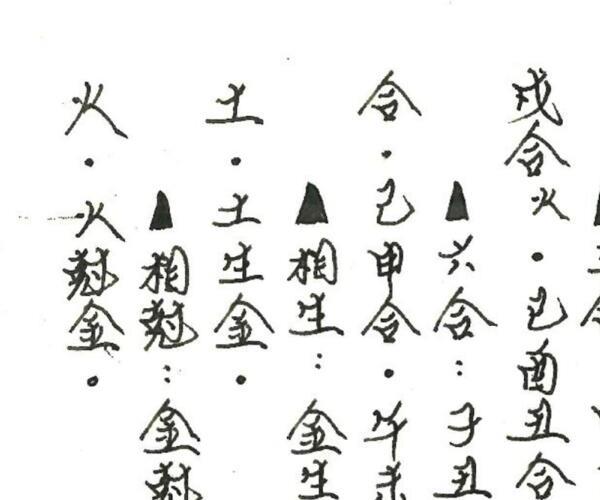 戌合火·巳酉丑合
▲六合：子丑
合·巳申合·午未
▲相生：金生
土·土生金·
▲相尅：金尅
火·火尅金·